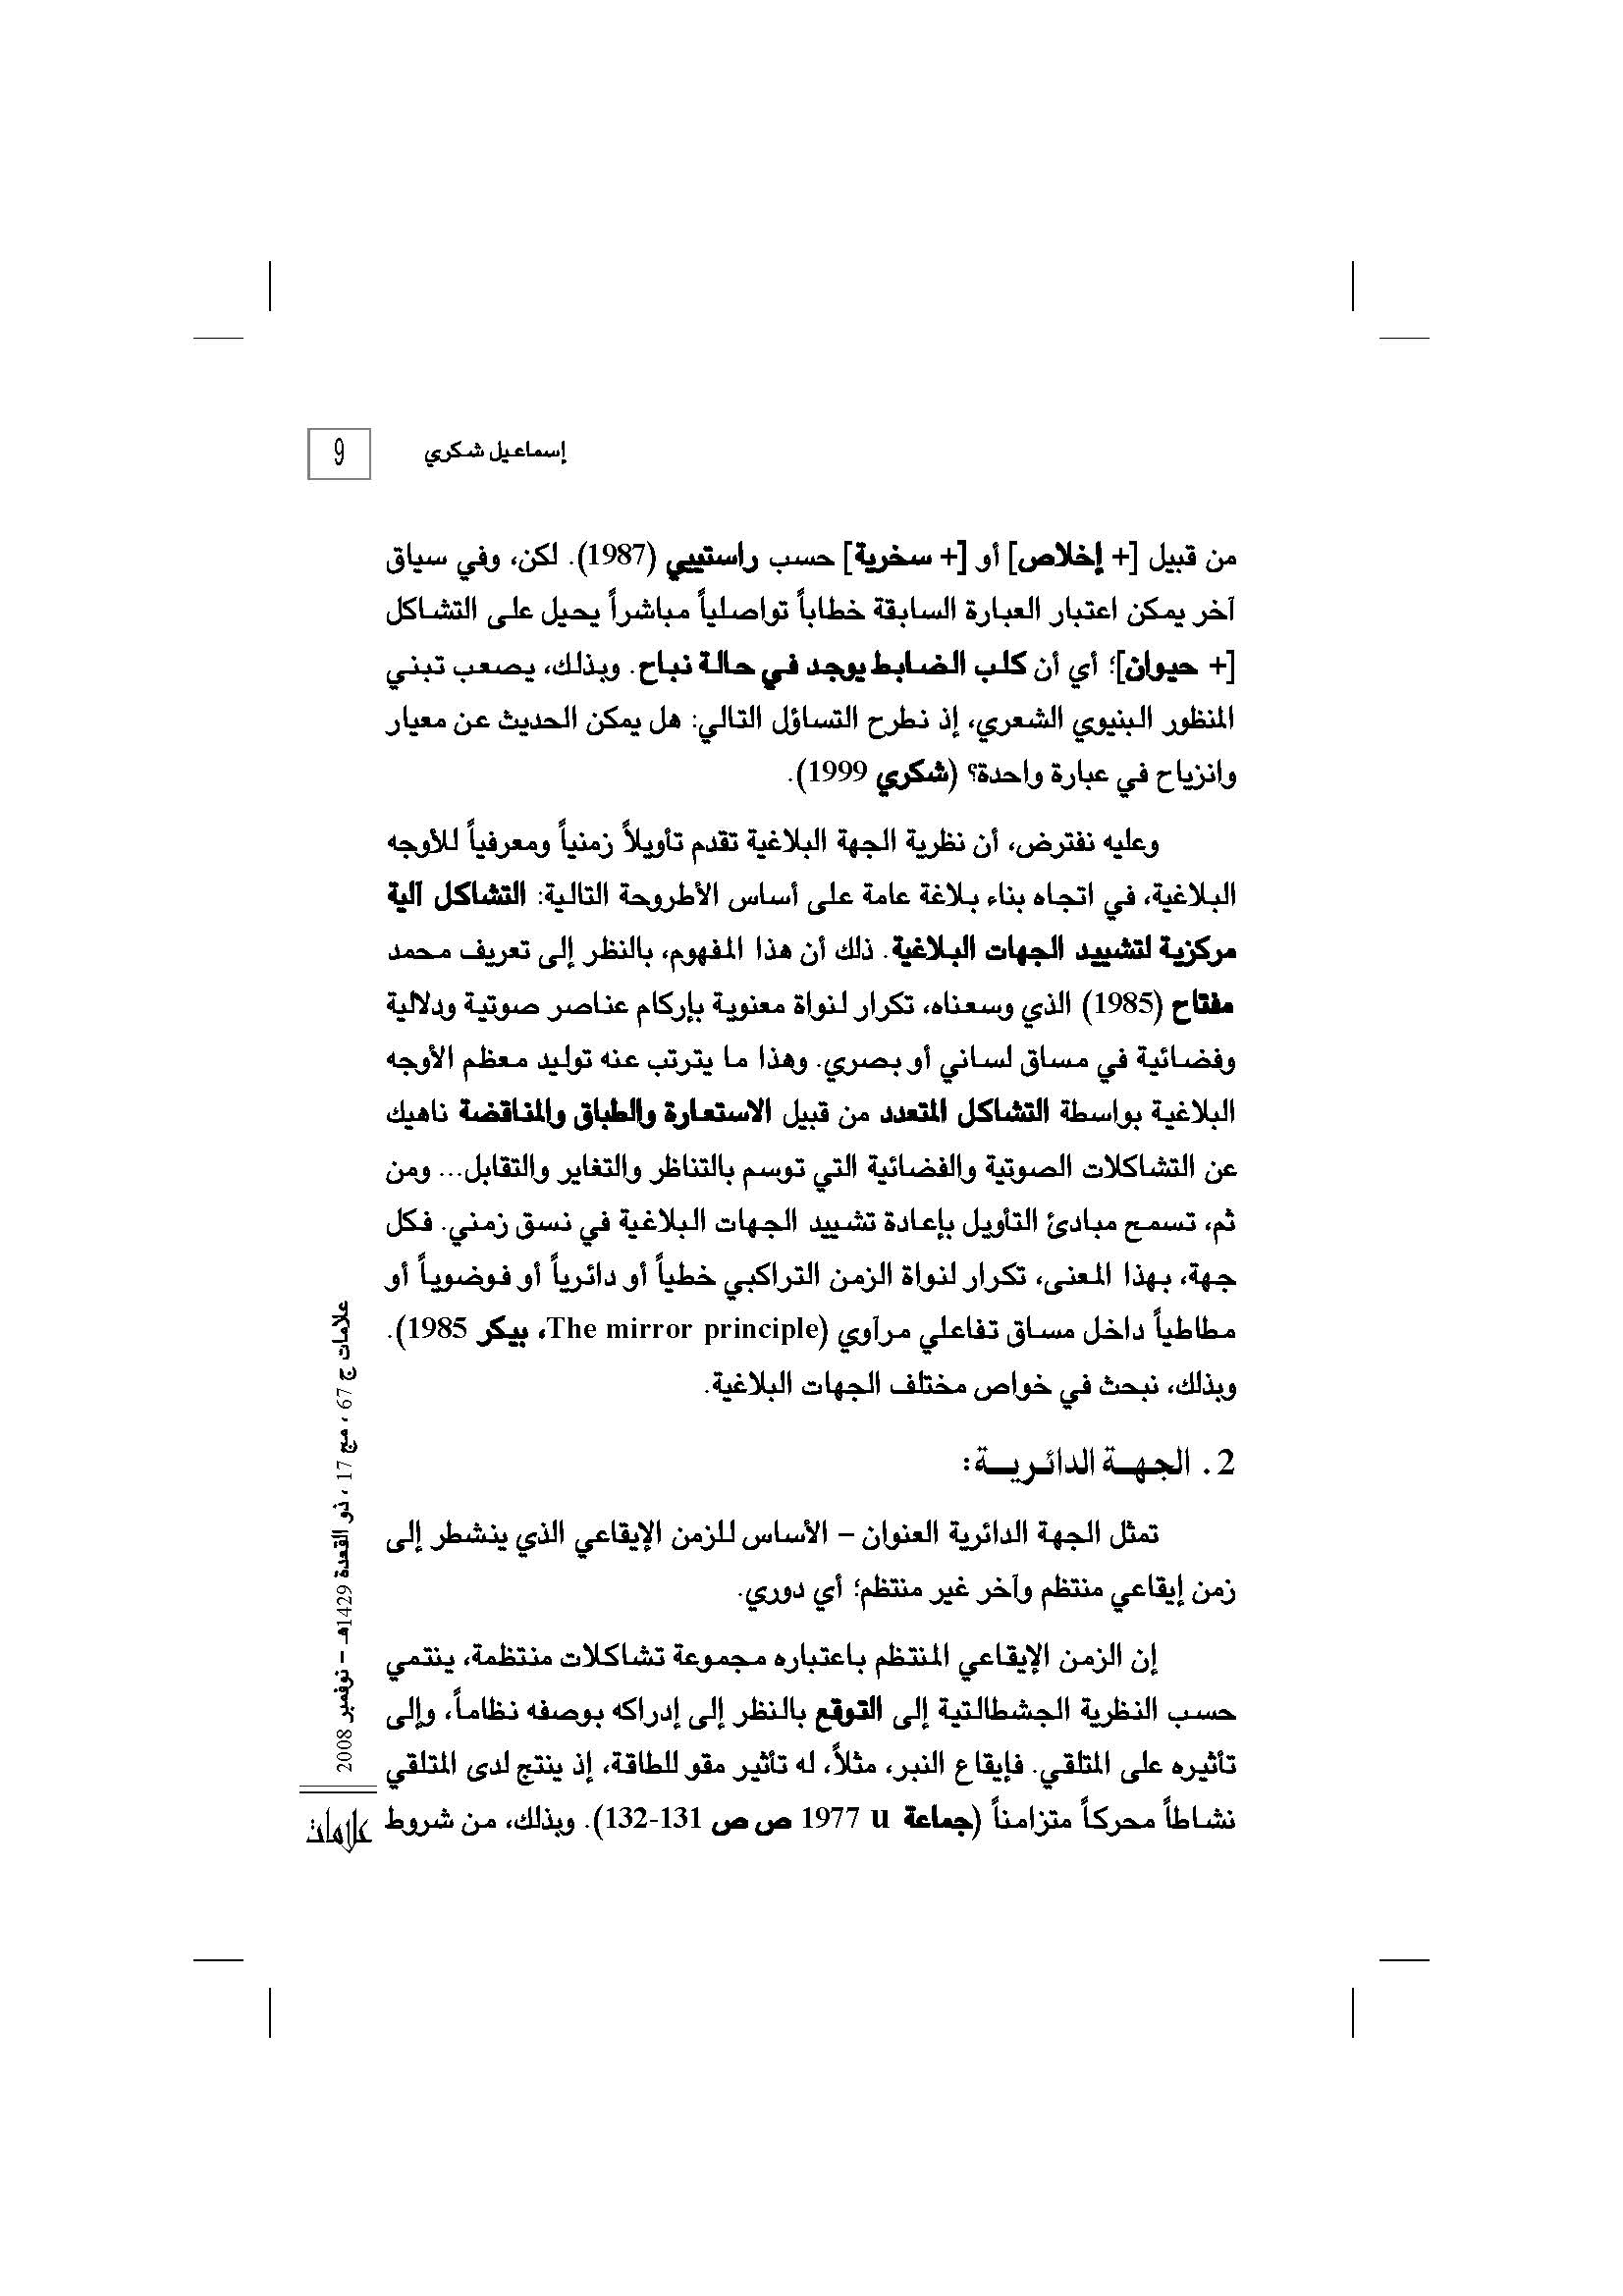 إسماعيل شكري
9
من قبيل [+ إخلاص] أو [+ سخرية] حسب راستيي (1987). لكن، وفي سياق
آخر يمكن اعتبار العبارة السابقة خطاباً تواصلياً مباشراً يحيل على التشاكل
[+ حيوان]؛ أي أن كلب الضابط يوجد في حالة نباح. وبذلك، يصعب تبني
المنظور البنيوي الشعري، إذ نطرح التساؤل التالي: هل يمكن الحديث عن معيار
وانزياح في عبارة واحدة؟ (شكري 1999).
وعليه نفترض، أن نظرية الجهة البلاغية تقدم تأويلاً زمنياً ومعرفياً للأوجه
البلاغية، في اتجاه بناء بلاغة عامة على أساس الأطروحة التالية: التشاكل آلية
مركزية لتشييد الجهات البلاغية. ذلك أن هذا المفهوم، بالنظر إلى تعريف محمد
مفتاح (1985) الذي وسعناه، تكرار لنواة معنوية بإركام عناصر صوتية ودلالية
وفضائية في مساق لساني أو بصري. وهذا ما يترتب عنه توليد معظم الأوجه
البلاغية بواسطة التشاكل المتعدد من قبيل الاستعارة والطباق والمناقضة ناهيك
عن التشاكلات الصوتية والفضائية التي توسم بالتناظر والتغاير والتقابل... ومن
ثم، تسمح مبادئ التأويل بإعادة تشييد الجهات البلاغية في نسق زمني. فكل
جهة، بهذا المعنى، تكرار لنواة الزمن التراكبي خطياً أو دائرياً أو فوضوياً أو
مطاطياً داخل مساق تفاعلي مرآوي (The mirror principle، بيكر 1985).
وبذلك، نبحث في خواص مختلف الجهات البلاغية.
2. الجهة الدائرية:
تمثل الجهة الدائرية العنوان – الأساس للزمن الإيقاعي الذي ينشطر إلى
زمن إيقاعي منتظم وآخر غير منتظم؛ أي دوري.
إن الزمن الإيقاعي المنتظم باعتباره مجموعة تشاكلات منتظمة، ينتمي
حسب النظرية الجشطالتية إلى التوقع بالنظر إلى إدراكه بوصفه نظاماً، وإلى
تأثيره على المتلقي. فإيقاع النبر، مثلاً، له تأثير مقو للطاقة، إذ ينتج لدى المتلقي
نشاطاً محركاً متزامناً (جماعة u 1977 ص ص 131-132). وبذلك، من شروط
علامات ج 67 ، مج 17 ، ذو القعدة 1429هـ – نوفمبر 2008
علامات